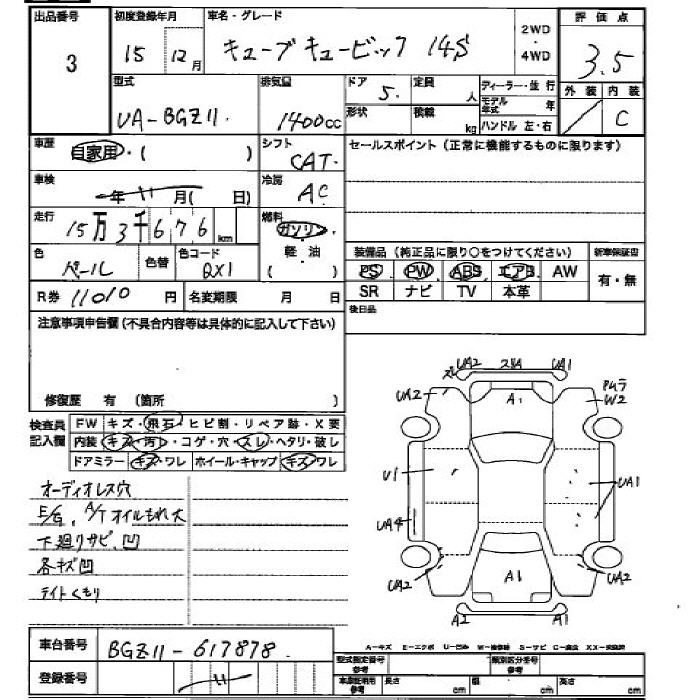 出品番号 初度登録年月 車名・グレード 2WD・4WD 評価点
3 15 12月 キューブキュービック 14S 3.5
型式 排気量 ドア 定員 人 ディーラー・並行 外装 内装
UA-BGZ11 1400cc 5 形状 積載 kg モデル年式 年 C
ハンドル 左・右
車歴 自家用・( ) シフト CAT セールスポイント (正常に機能するものに限ります)
車検 年 11月( 日) 冷房 AC
走行 15万3千676km 燃料 ガソリン
軽・油
( )
色 パール 色替 色コード QX1
装備品 (純正品に限り○をつけてください) 新車保証書
PS PW ABS エアB AW 有・無
SR ナビ TV 本革
R券 11010 円 名変期限 月 日
後日品
注意事項申告欄(不具合内容等は具体的に記入して下さい)
修復歴 有 (箇所 )
検査員記入欄 FW キズ・飛石・ヒビ割・リペア跡・X要
内装 キズ・汚レ・コゲ・穴・スレ・ヘタリ・破し
ドアミラー キズ・ワレ ホイール・キャップ キズ・ワレ
オーディオレス穴
E/G, A/Tオイルもれ大
下廻りサビ、凹
各キズ凹
ライトくもり
UA2 スリA UA1
UA2 A1 W2
U1 UA1
UA4
UA2 A1 UA2
A2 A1
A-キズ E-エクボ U-凹み W-補修跡 S-サビ C-腐食 XX-交換済
車台番号 BGZ11-617878
登録番号 11
型式指定番号 参考 類別区分番号 参考
車庫証明用 参考 長さ cm 幅 cm 高さ cm